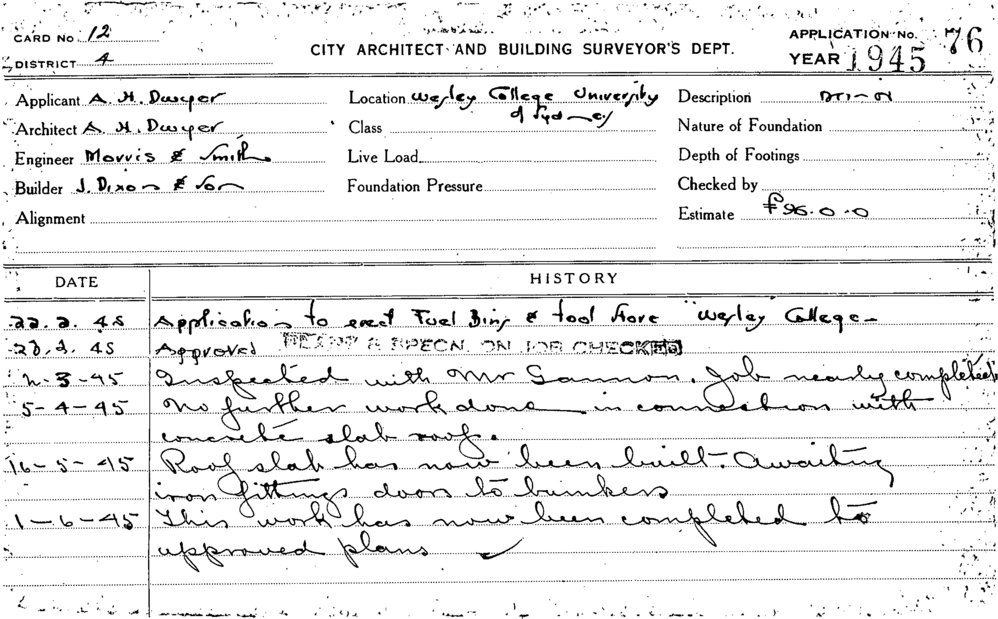 CARD No. 12
DISTRICT 4
CITY ARCHITECT AND BUILDING SURVEYOR'S DEPT.
APPLICATION No. 76
YEAR 1945
Applicant A. H. Dwyer
Architect A. H. Dwyer
Engineer Morris & Smith
Builder J. Dixon & Son
Alignment
Location Wesley College University
of Sydney
Class
Live Load
Foundation Pressure
Description
Nature of Foundation
Depth of Footings
Checked by
Estimate £96.0.0
DATE HISTORY
22.2.45 Application to erect Fuel Bins & tool store "Wesley College"
28.2.45 Approved & SPECN. ON JOB CHECKED
2-3-45 Inspected with Mr Gannon. Job nearly completed
5-4-45 No further work done in connection with
concrete slab roof.
16-5-45 Roof slab has now been built. Awaiting
iron fittings doors to bunkers
1-6-45 This work has now been completed to
approved plans ✓